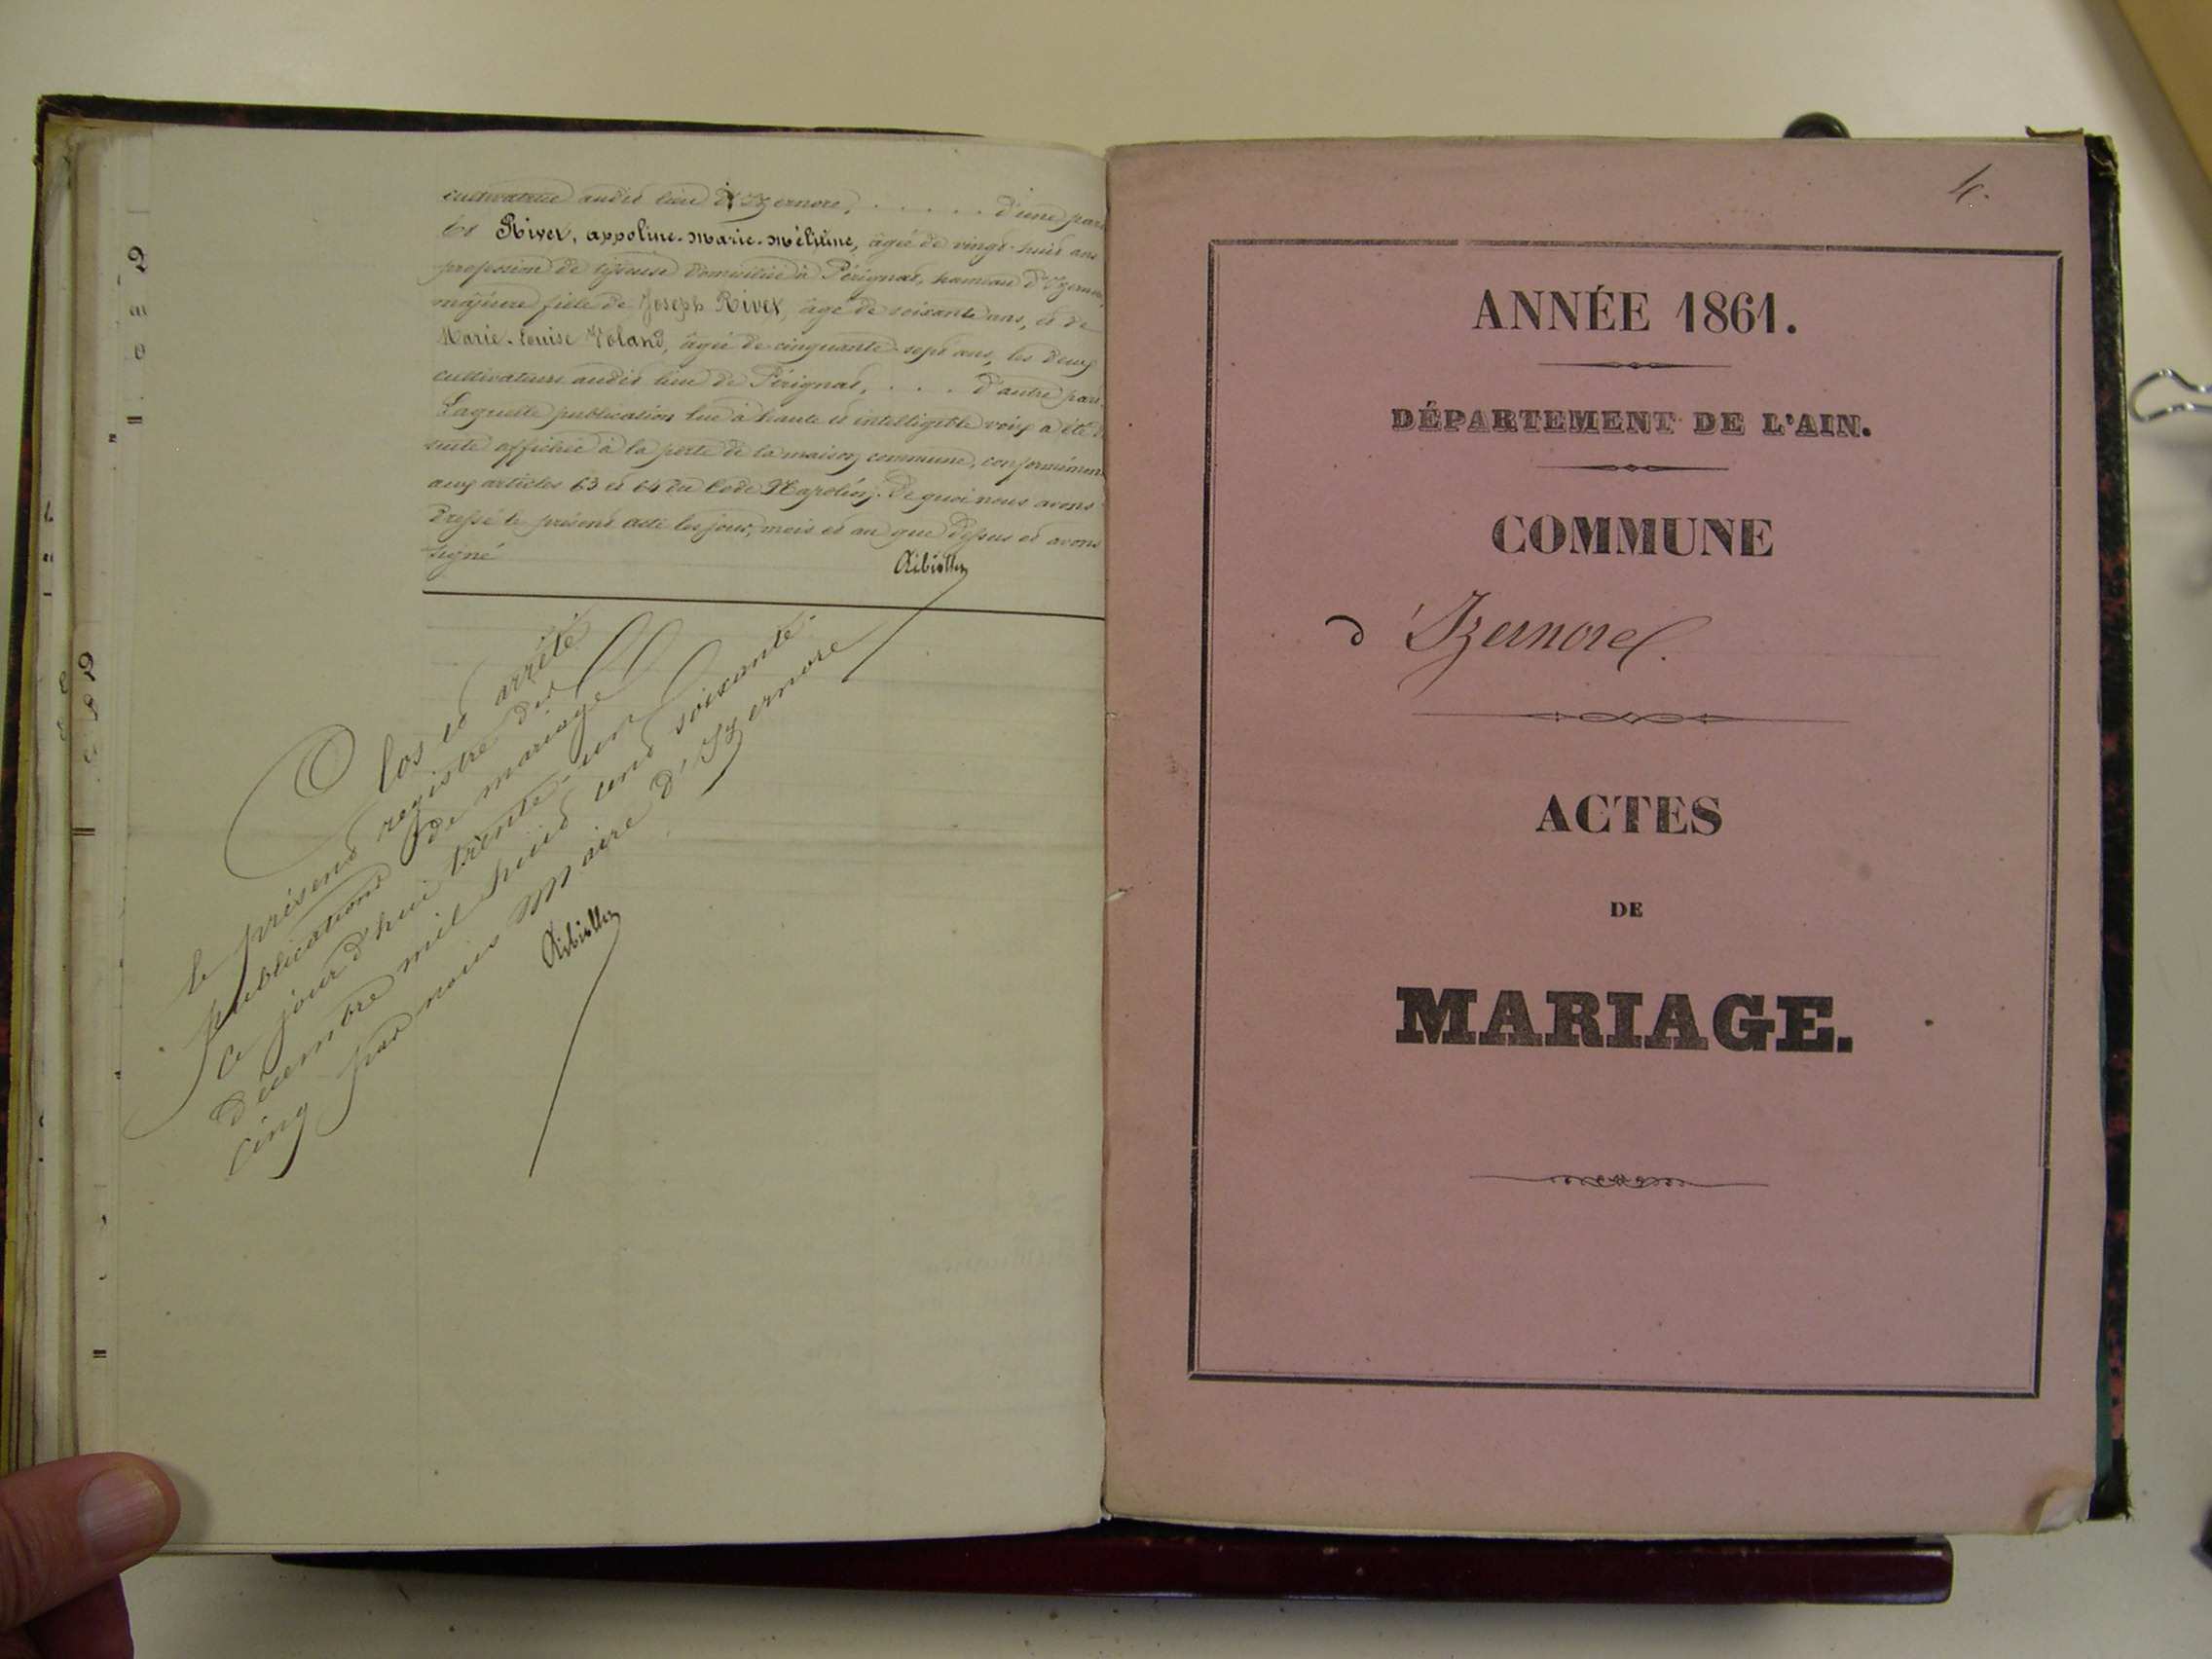 cultivatrice audit lieu d'Izernore, . . . . . d'une part
Et Rivex, appoline-Marie-Mélitine, âgée de vingt-huit ans
profession de tisseuse domiciliée à Pérignat, hameau d'Izernore,
majeure fille de Joseph Rivex, âgé de soixante ans, et de
Marie-Louise Voland, âgée de cinquante-sept ans, les deux
cultivateurs audit lieu de Pérignat, . . . . d'autre part.
Laquelle publication lue à haute et intelligible voix a été
suite affichée à la porte de la maison commune, conformément
aux articles 63 et 64 du Code Napoléon. De quoi nous avons
dressé le présent acte les jour, mois et an que dessus et avons
signé
Clos et arrêté
le présent registre des
publications de mariage
ce jour d'hui trente-un
décembre mil huit cent soixante
cinq par nous Maire d'Izernore
4.
ANNÉE 1861.
DÉPARTEMENT DE L'AIN.
COMMUNE
d'Izernore.
ACTES
DE
MARIAGE.